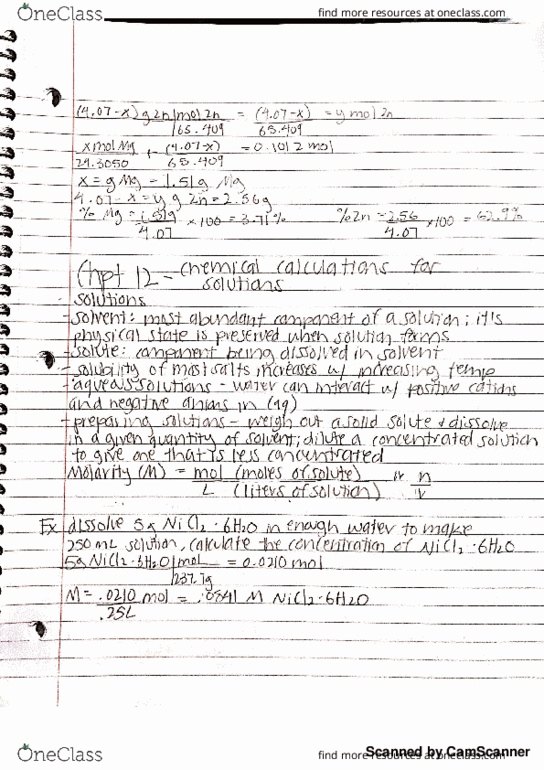 OneClass
find more resources at oneclass.com
(4.07-x)g Zn | 1mol Zn = (4.07-x) = y mol Zn
65.409 65.409
x mol Mg + (4.07-x) = 0.1012 mol
24.3050 65.409
x = g Mg = 1.51g Mg
4.07-x = y g Zn = 2.56g
% Mg = 1.51g × 100 = 3.71% % Zn = 2.56 × 100 = 62.9%
4.07 4.07
Chpt 12 - chemical calculations for
solutions
solutions
- solvent: most abundant component of a solution; it's
physical state is preserved when solution forms
- solute: component being dissolved in solvent
- solubility of most salts increases w/ increasing temp
- aqueous solutions - water can interact w/ positive cations
and negative anions in (aq)
- preparing solutions - weigh out a solid solute & dissolve
in a given quantity of solvent; dilute a concentrated solution
to give one that is less concentrated
Molarity (M) = mol (moles of solute) n
L (liters of solution) V
Ex dissolve 5g NiCl2 · 6H2O in enough water to make
250 mL solution, calculate the concentration of NiCl2 · 6H2O
5g NiCl2 · 6H2O | mol = 0.0210 mol
237.7g
M = .0210 mol = .0841 M NiCl2 · 6H2O
.25L
OneClass
find more resources at oneclass.com
Scanned by CamScanner